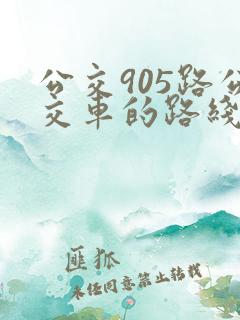 公交905路公
交车的路线
匪狐
未经同意禁止转载